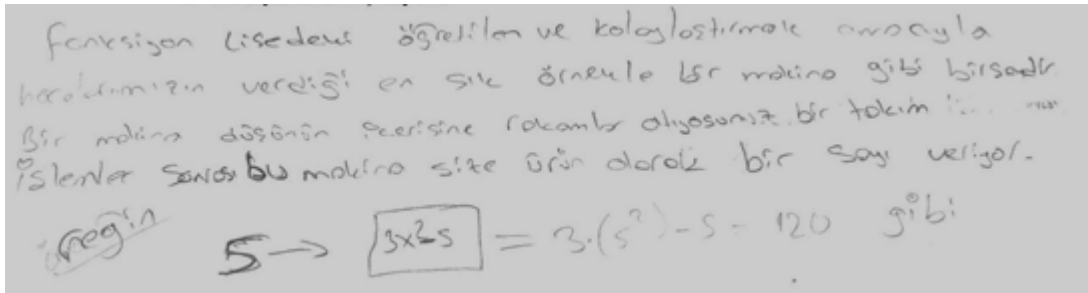 fonksiyon Lisedeki öğretilen ve kolaylaştırmak amacıyla
verdiği en sık örnekle bir makina gibi birşeydir
Bir makina düşünün içerisine rakamlar atıyosunuz bir takım
işlemler sonrası bu makina size ürün olarak bir sayı veriyor.
örneğin 5 → 3x²-5 = 3.(5²)-5 = 120 gibi